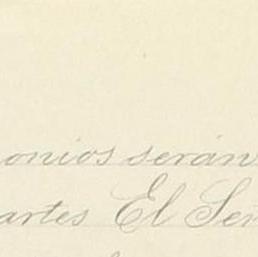 onios serán
artes El Señ